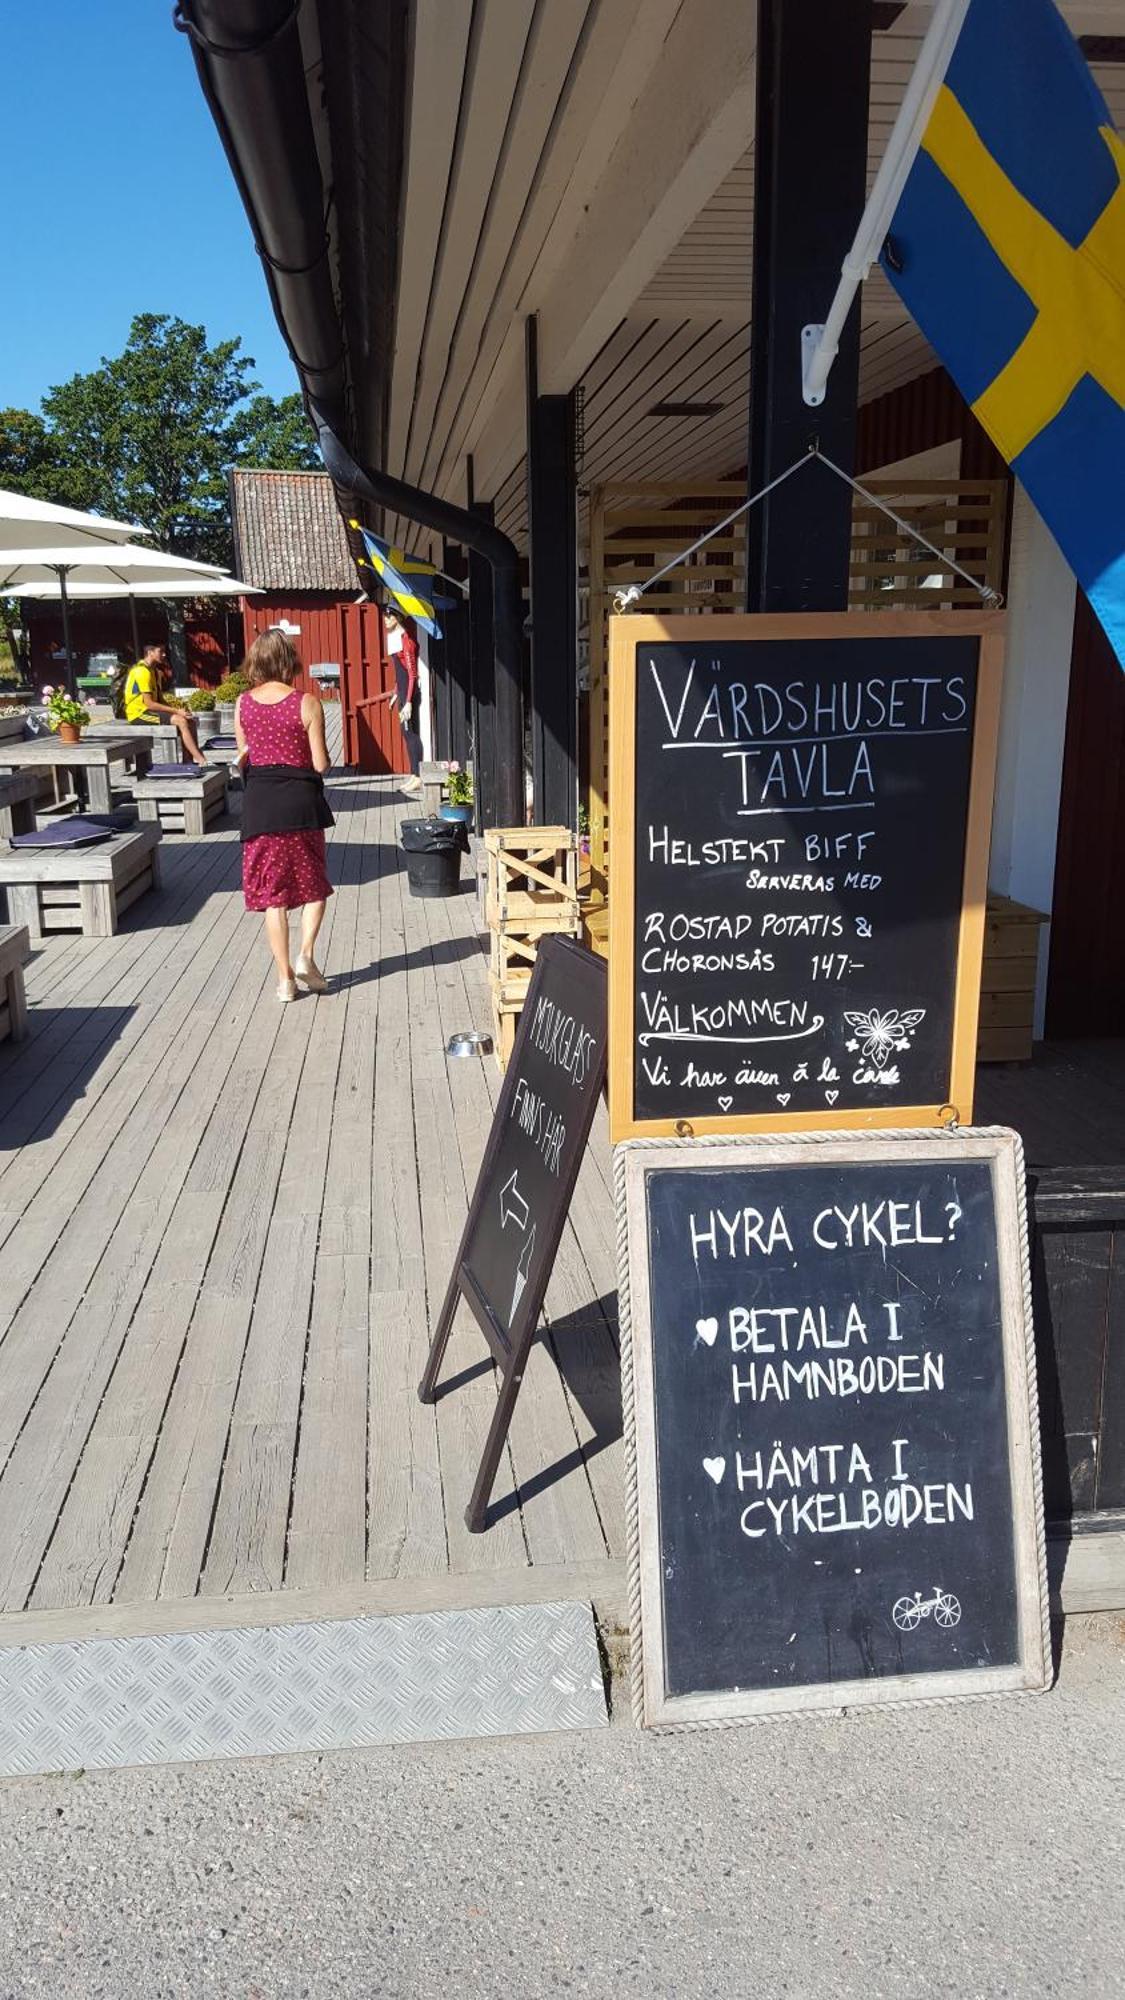 VÄRDSHUSETS
TAVLA
HELSTEKT BIFF
SERVERAS MED
ROSTAD POTATIS &
CHORONSÅS 147:-
VÄLKOMMEN
Vi har även à la carte
MJUKGLASS
FINNS HÄR
HYRA CYKEL?
BETALA I
HAMNBODEN
HÄMTA I
CYKELBODEN